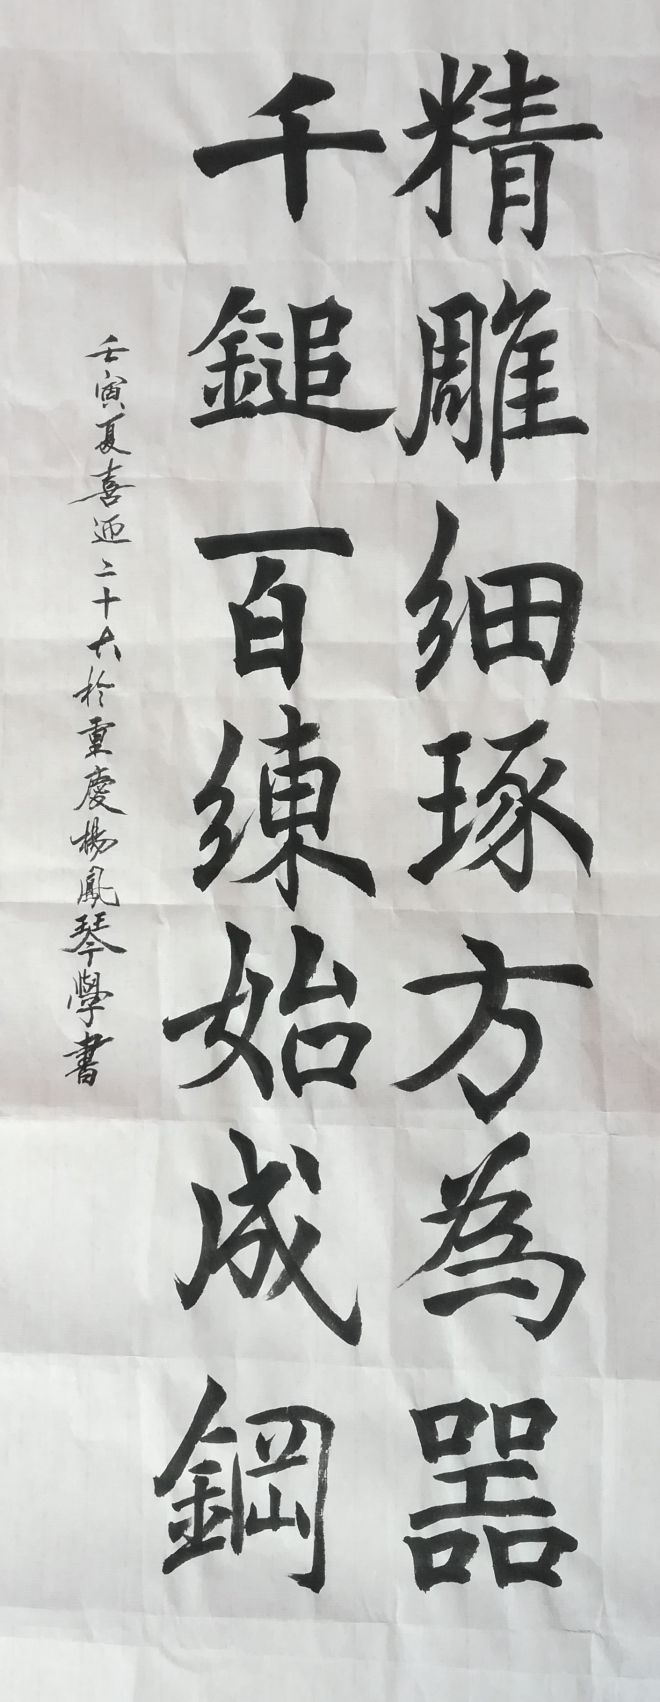 精雕细琢方為器
千鎚百練始成鋼
壬寅夏喜迎二十大於重慶楊鳳琴學書